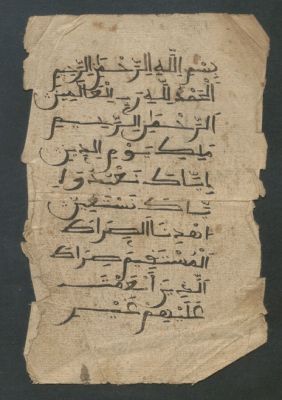 بسم الله الرحمن الرحيم
الحمد لله رب العلمين
الرحمن الرحيم
ملك يوم الدين
إياك نعبد وإ
ياك نستعين
اهدنا الصراط
المستقيم صراط
الذين أنعمت
عليهم غير